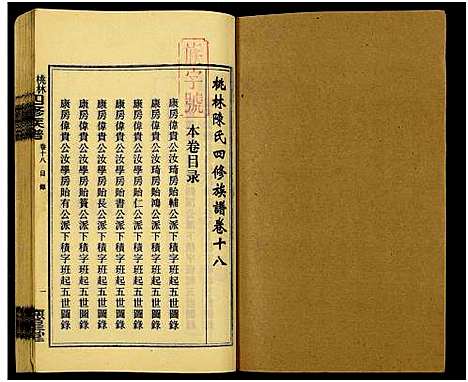 桃林陳氏四修族譜卷十八
族字號
本卷目录
康房偉貴公汝琦房貽輔公派下積字班起五世圖錄
康房偉貴公汝琦房貽鴻公派下積字班起五世圖錄
康房偉貴公汝學房貽仁公派下積字班起五世圖錄
康房偉貴公汝學房貽書公派下積字班起五世圖錄
康房偉貴公汝學房貽長公派下積字班起五世圖錄
康房偉貴公汝學房貽賢公派下積字班起五世圖錄
康房偉貴公汝學房貽有公派下積字班起五世圖錄
桃林四修族譜
卷十八 目錄
一